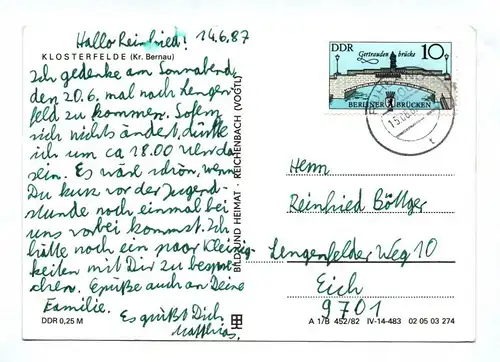 Hallo Reinfried! 14.6.87
KLOSTERFELDE (Kr. Bernau)
Ich gedenke am Sonnabend,
den 20.6. mal nach Lengen-
feld zu kommen. Sofern
sich nichts ändert, dürfte
ich um ca 18.00 Uhr da
sein. Es wäre schön, wenn
Du kurz vor der Jugend-
stunde noch einmal bei
uns vorbei kommst. Ich
hätte noch ein paar Kleinig-
keiten mit Dir zu bespre-
chen. Grüße auch an Deine
Familie.
Es grüßt Dich
Matthias.
DDR 0,25 M
BILD UND HEIMAT · REICHENBACH (VOGTL)
DDR
Gertraudenbrücke
10
BERLINER BRÜCKEN
15.06.
Herrn
Reinfried Böttger
Lengenfelder Weg 10
Eich
9701
A 1/B 452/82 IV-14-483 02 05 03 274